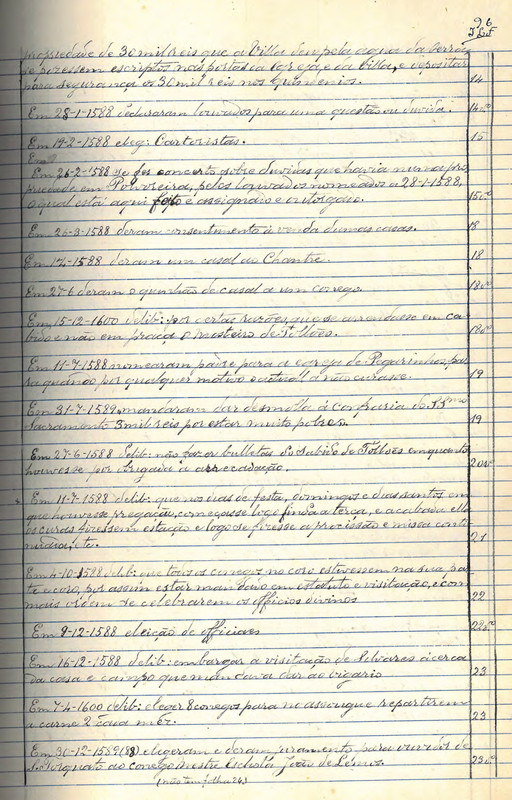 96
Fls
propriedade de 30 mil reis que a Villa deu pela agua da Serra,
se pozessem escriptos nas portas da Egreja e da Villa, e depositar
para segurança os 30 mil reis nos quindenios. 14
Em 28-1-1588 declararam louvados para uma questão ou duvida. 14vº
Em 19-2-1588 eleg: Cartoristas. 15
Em
Em 26-2-1588 se fez concerto sobre duvidas que havia numa pro
priedade em Polvoreira, pelos louvados nomeados a 28-1-1588,
o qual está aqui feito e assignado e outorgado. 15vº
Em 26-3-1588 deram consentimento à venda dumas casas. 18
Em 1-4-1588 deram um casal ao Chantre. 18
Em 27-6 deram o quinhão de casal a um conego. 18vº
Em 15-12-1600 delib: por certas razões, que se arrendasse em ca-
bido e não em praça o mosteiro de Tolões. 18vº
Em 11-7-1588 nomearam padre para a egreja de Pegarinhos, pa-
ra quando por qualquer motivo o actual a não curasse. 19
Em 31-7-1589 mandaram dar desmolla à confraria do SSmo
Sacramento 3 mil reis por estar muito pobre. 19
Em 27-6-1588 delib: não fazer bulletas do sabido de Tolões emquanto
houvesse por obrigada a arrecadação. 20vº
Em 11-7-1588 delib: que nos dias de festa, domingos e dias santos em
que houvesse pregação, começasse logo finda a terça, e acabada ella
os curas fizessem estação e logo se fizesse a procissão e missa conti
nuada, etc. 21
Em 4-10-1588 delib: que todos os conegos no coro estivessem na sua par
te e coro, por assim estar mandado em estatuto e visitação, e com
mais ordem se celebrarem os officios divinos 22
Em 9-12-1588 eleição de officiaes 22vº
Em 16-12-1588 delib: embargar a visitação de Silvares ácerca
da casa e campo que mandava dar ao vigario 23
Em 7-4-1600 delib: eleger 2 conegos para no assougue repartirem
a carne 2 cada mez. 23
Em 30-12-1589 (88) elegeram e deram juramento para ouvidor de
S. Torquato ao conego Mestre Eschola João de Lemos. 23vº
(não tem folha 24)